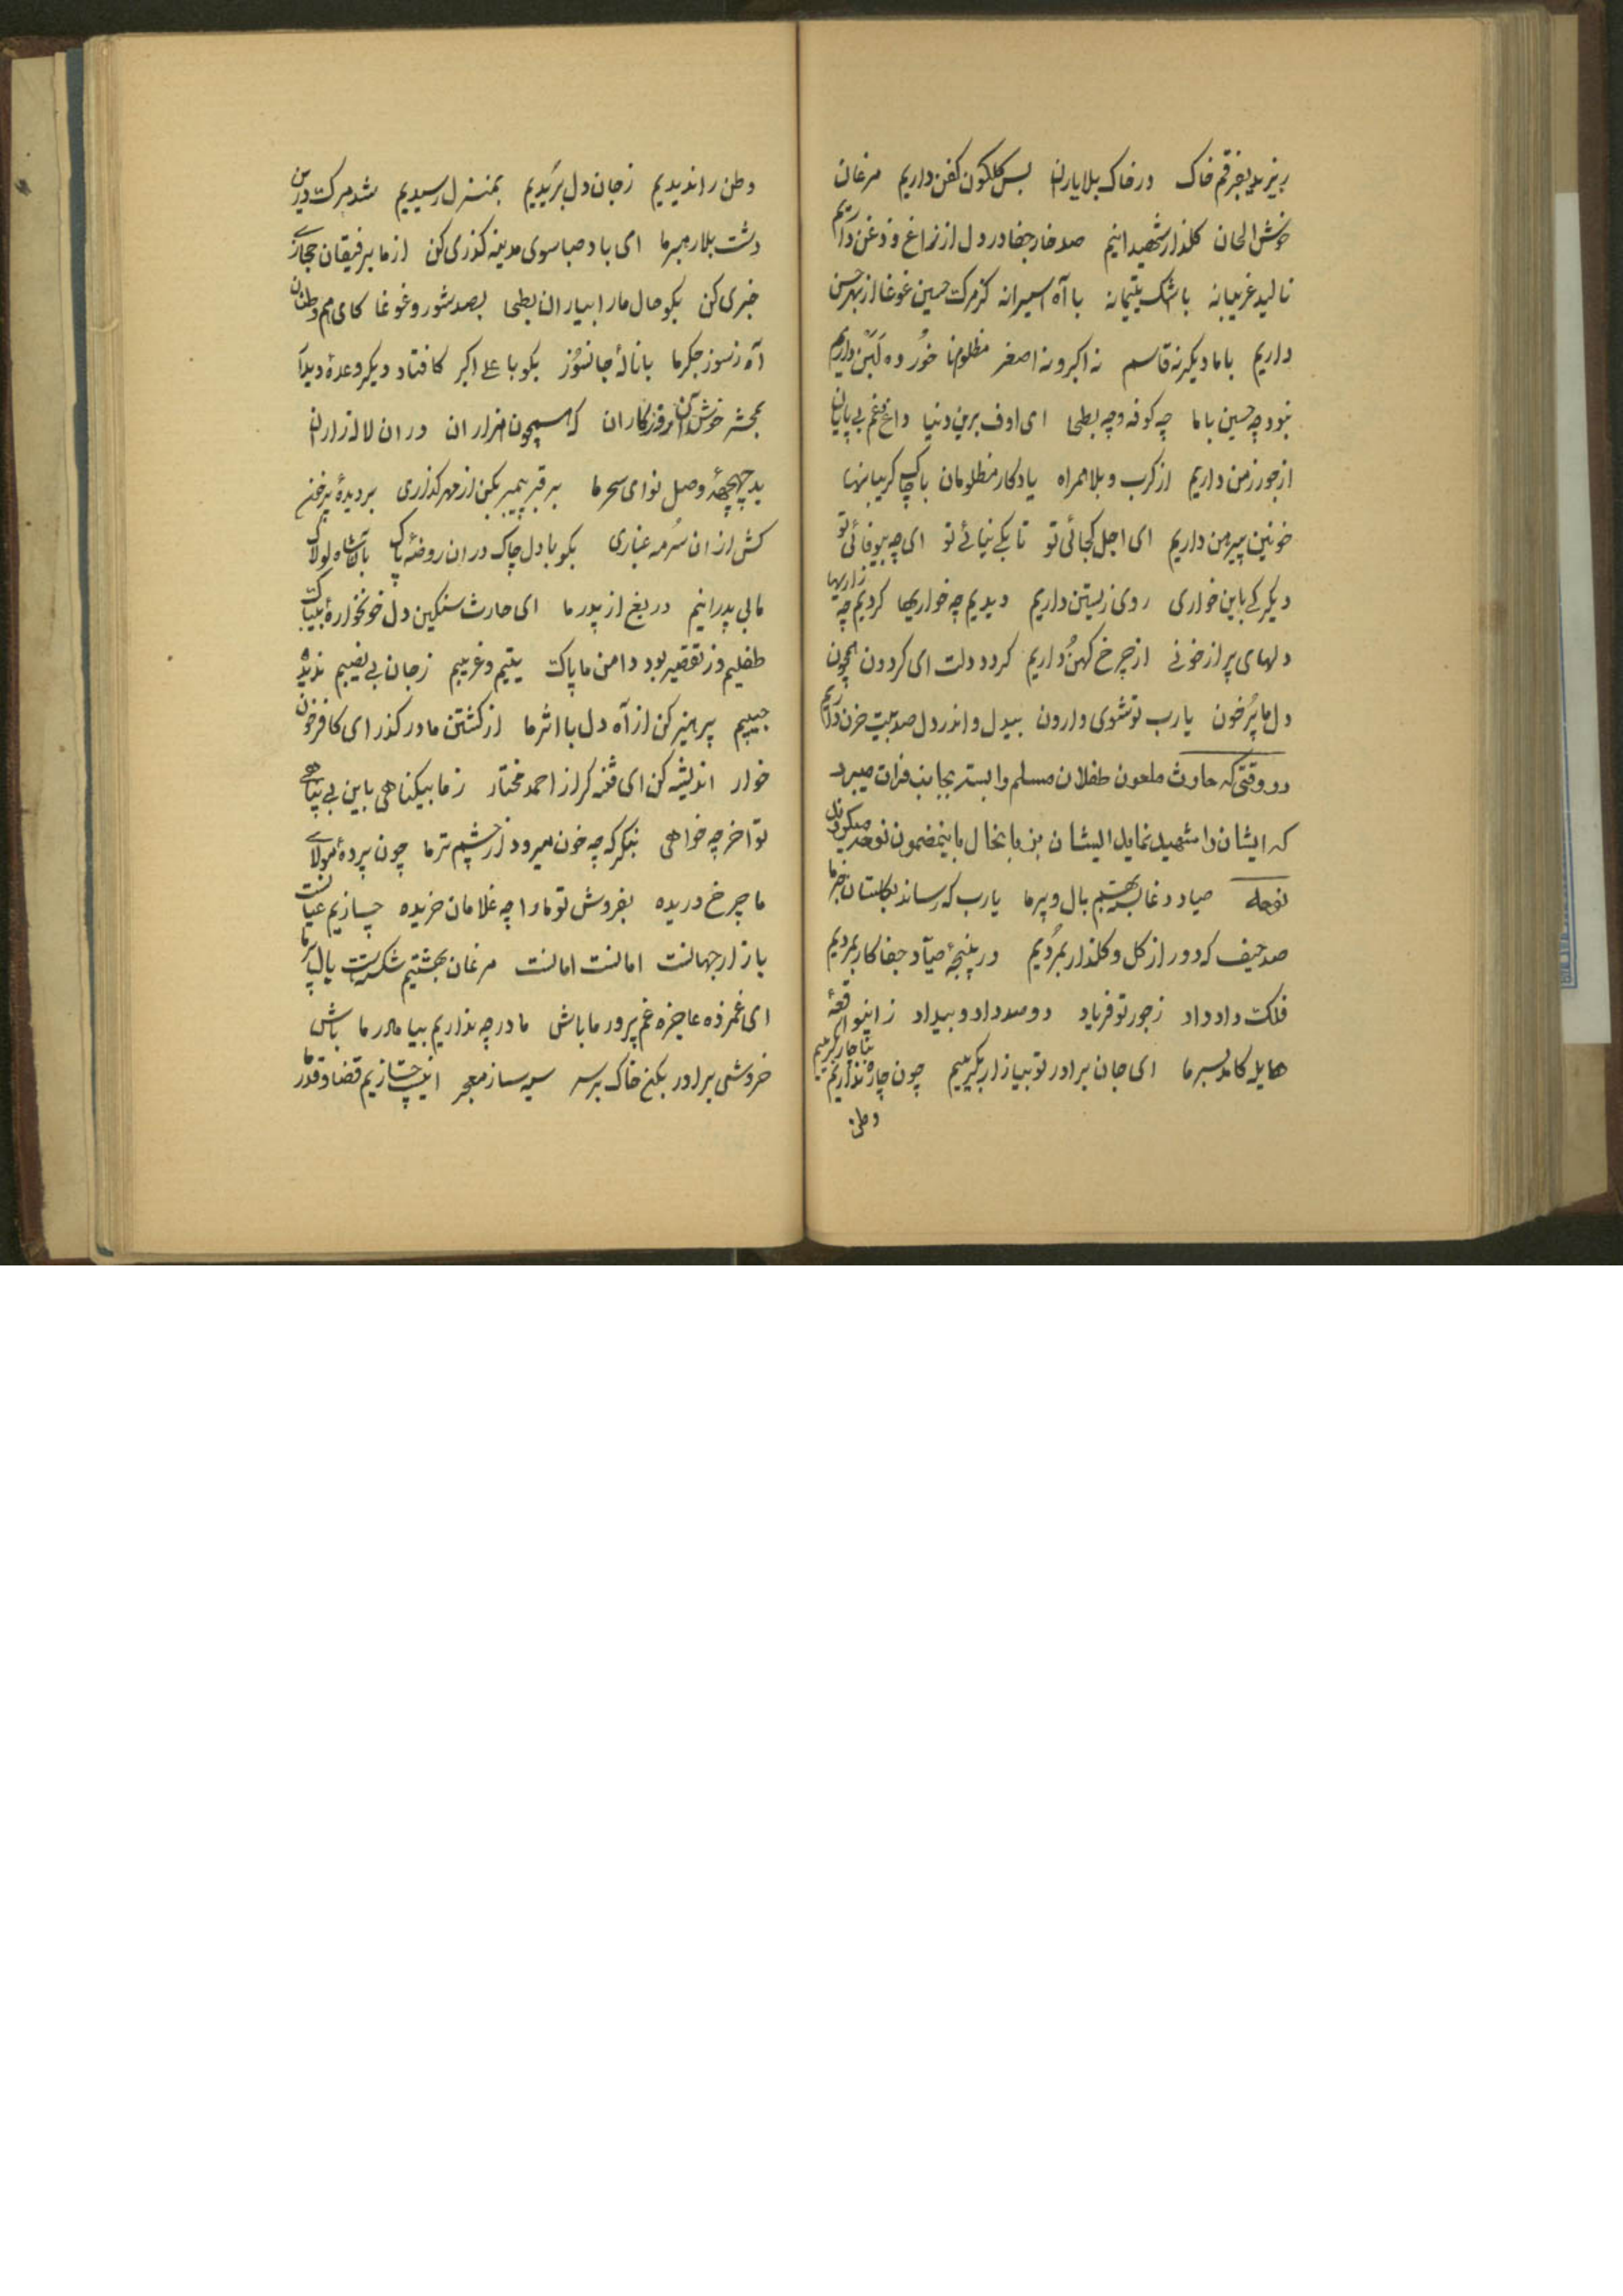 ریزید بفرقم خاک در خاک بلا یاران بس گلگون کفن داریم مرغان
خوش الحان گلذار شهیدانیم صد خار جفا در دل از زاغ و زغن داریم
نالید غریبانه با اشک یتیمانه با آه اسیرانه کز مرکت حسین غوغا از بهر حسن
داریم با ما دیگر نه قاسم نه اکبر و نه اصغر مظلوم ما خورده لبن داریم
نبود چه حسین با ما چه کوفه و چه بطحا ای اوف برین دنیا داغ و غم بی پایان
از جور زمن داریم از کرب و بلا همراه یادکار مظلومان با چاک کریبانها
خونین پیرهن داریم ای اجل کجائی تو تا بکے نیائے تو ای چه بیوفائی تو
دیگر کے باین خواری روی زیستن داریم دیدیم چه خواریها کردیم چه زاریها
دلهای پر از خونی از چرخ کهن داریم کردد دلت ای کردون همچون
دل ما پُر خون یا رب تو شوی وارون بیدل و اندر دل صد بیت حزن داریم
در وقتی که حارث ملعون طفلان مسلم را بسته بجانب فرات میبرد
که ایشان را شهید نماید ایشان بزبانحال باینمضمون نوحه میکردند
نوحه صیاد دغا بسته بهم بال و پر ما یا رب که رساند بگلستان خبر ما
صد حیف که دور از کل و کلذار بمردیم در پنجهٔ صیاد جفا کار بمردیم
فلکت داد داد ز جور تو فریاد دو صد داد و بیداد ز اینواقعهٔ
هایل کامد بسر ما ای جان برادر تو بیا زار بگرییم چون چاره نداریم بناچار بگرییم
وطن
وطن را ندیدیم ز جان دل بریدیم بمنزل رسیدیم شد مرکت درین
دشت بلا رهبر ما ای باد صبا سوی مدینه کذری کن از ما برفیقان حجازے
خبری کن بکو حال ما را بیاران بطحا بصد شور و غوغا کای هم وطنان
آه ز سوز جکر ما با نالهٔ جانسوز بکو با علے اکبر کافتاد دیکر وعدهٔ دیدار
بمحشر خوش آن روزکاران که همچون هزاران در ان لاله زاران
بد چهچههٔ وصل نوای سحر ما بر قبر پیمبر بکن از مهر کذاری بر دیدهٔ پر خون
کش از ان سُرمه غباری بکو با دل چاک در ان روضهٔ پاک با شاه لولاک
ما بی پدرانیم دریغ از پدر ما ای حارث سنکین دل خونخوارهٔ بیباکت
طفلیم و ز تقصیر بود دامن ما پاکت یتیم و غریبم ز جان بی نصیبم ندیده
حبیبم پرهیز کن از آه دل با اثر ما از کشتن ما در کذر ای کافر خون
خوار اندیشه کن ای فتنه کر از احمد مختار ز ما بیکناهی باین بی پناهی
تو آخر چه خواهی بنکر که چه خون میرود از چشم تر ما چون پردهٔ مولای
ما چرخ دریده بفروش تو ما را چه غلامان خریده چسازیم عیانست
بازار جهانست امانست امانست مرغان بهشتیم شکسته بال و پر ما
ای غمزده عاجزه غم پرور ما باش مادر چه نداریم بیا مادر ما باش
خروشی برادر بکن خاک بر سر سیه ساز معجر اینست چسازیم قضا و قدر ما